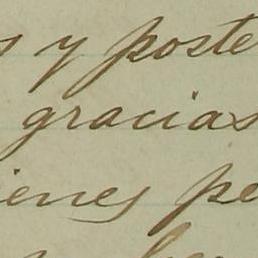 y poste
gracias
ienes pe